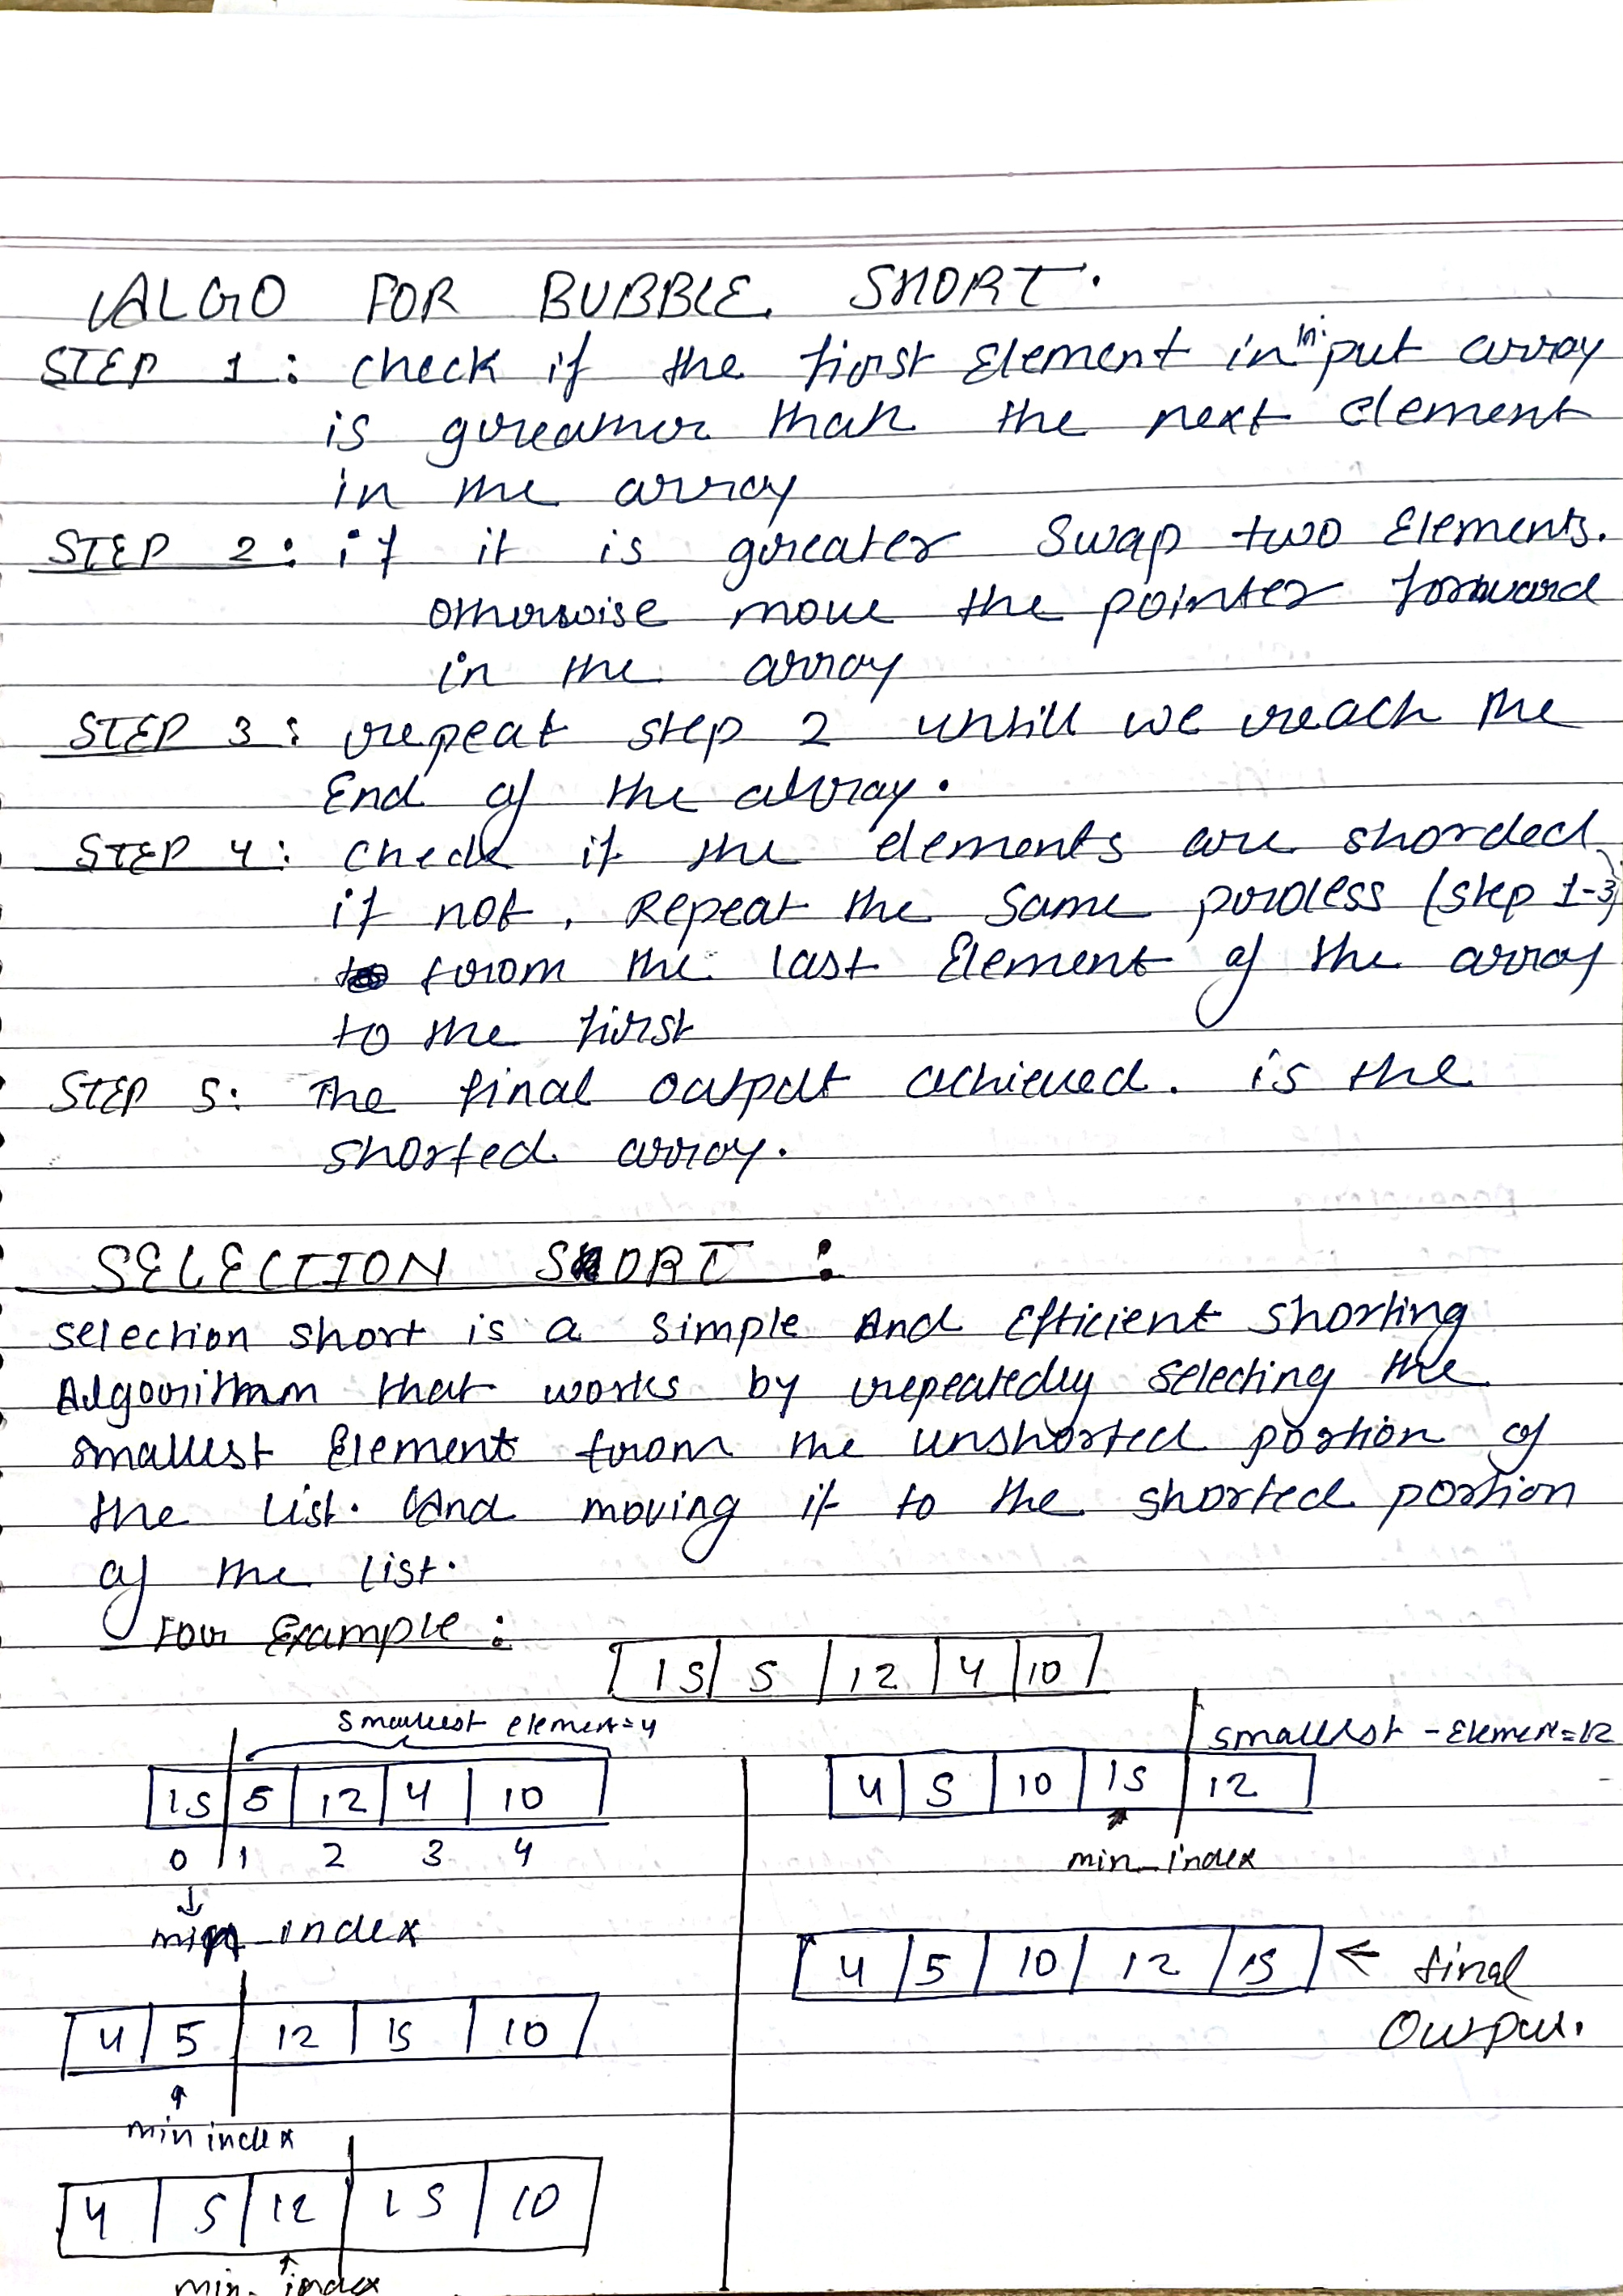 ALGO FOR BUBBLE SHORT.
STEP 1: check if the first Element in input array
is greather than the next element
in the array
STEP 2: if it is greater Swap two Elements.
otherwise move the pointer forward
in the array
STEP 3: repeat step 2 untill we reach the
End of the array.
STEP 4: check if the elements are shorded
if not, Repeat the Same process (step 1-3)
from the last Element of the array
to the first
STEP 5: The final output achieved. is the
shorted array.
SELECTION SORT:
selection short is a simple And Efficient shorting
Algorithm that works by repeatedly selecting the
smallest Element from the unshorted portion of
the list. And moving it to the shorted portion
of the list.
For Example:
15 5 12 4 10
smallest element=4
15 5 12 4 10
0 1 2 3 4
min_index
4 5 12 15 10
min index
4 5 12 15 10
min_index
smallest-Element=12
4 5 10 15 12
min_index
4 5 10 12 15 ← final
Output.